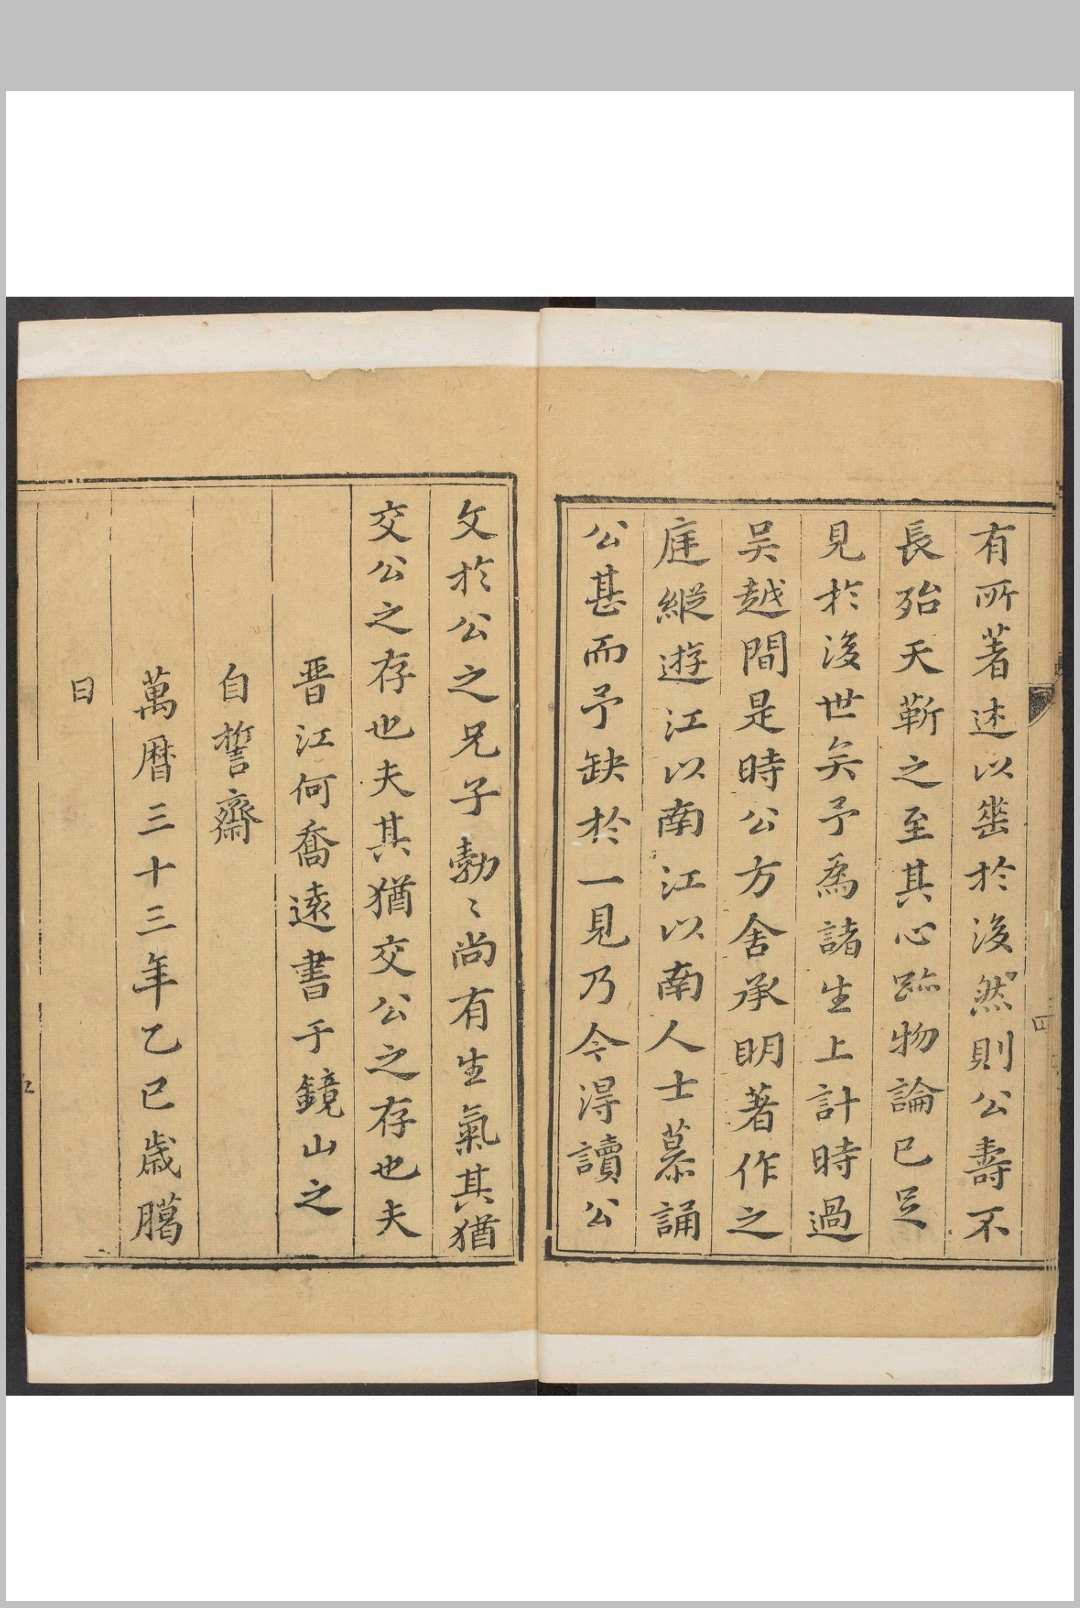 有所著述以埀於後然則公壽不
長殆天蘄之至其心跡物論已足
見於後世矣予為諸生上計時過
吴越間是時公方舍承明著作之
庭縱遊江以南江以南人士慕誦
公甚而予缺於一見乃今得讀公
四
文於公之兄子勃〻尚有生氣其猶
交公之存也夫其猶交公之存也夫
晉江何喬遠書于鏡山之
自誓齋
萬曆三十三年乙巳歲臈
日
五